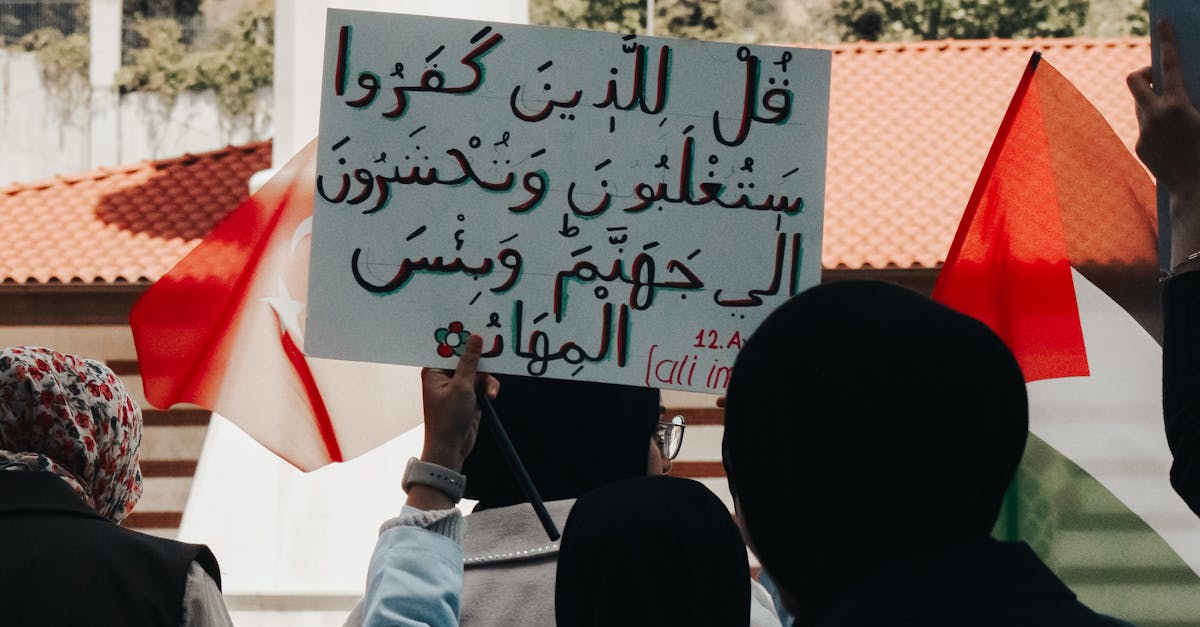 قُلْ لِلَّذِينَ كَفَرُوا
سَتُغْلَبُونَ وَتُحْشَرُونَ
اِلي جَهَنَّمَؕ وَبِئْسَ
الْمِهَادُ
12.
(ali